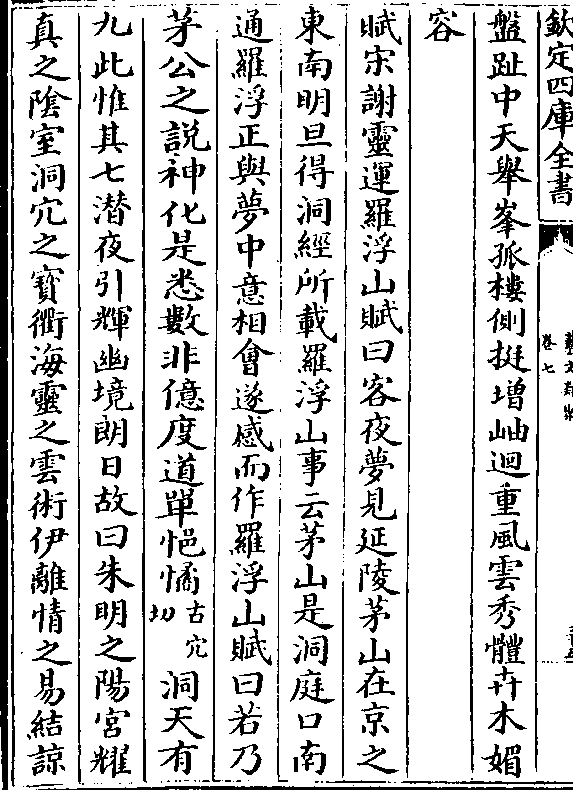 欽定四庫全書
藝文類聚
卷七
盤趾中天舉峯孤樓側挺增岫迴重風雲秀體卉木媚
容
賦宋謝靈運羅浮山賦曰客夜夢見延陵茅山在京之
東南明旦得洞經所載羅浮山事云茅山是洞庭口南
通羅浮正與夢中意相會遂感而作羅浮山賦曰若乃
茅公之說神化是悉數非億度道單悒憰古穴切洞天有
九此惟其七潛夜引輝幽境朗日故曰朱明之陽宮耀
真之陰室洞穴之寳衢海靈之雲術伊離情之易結諒